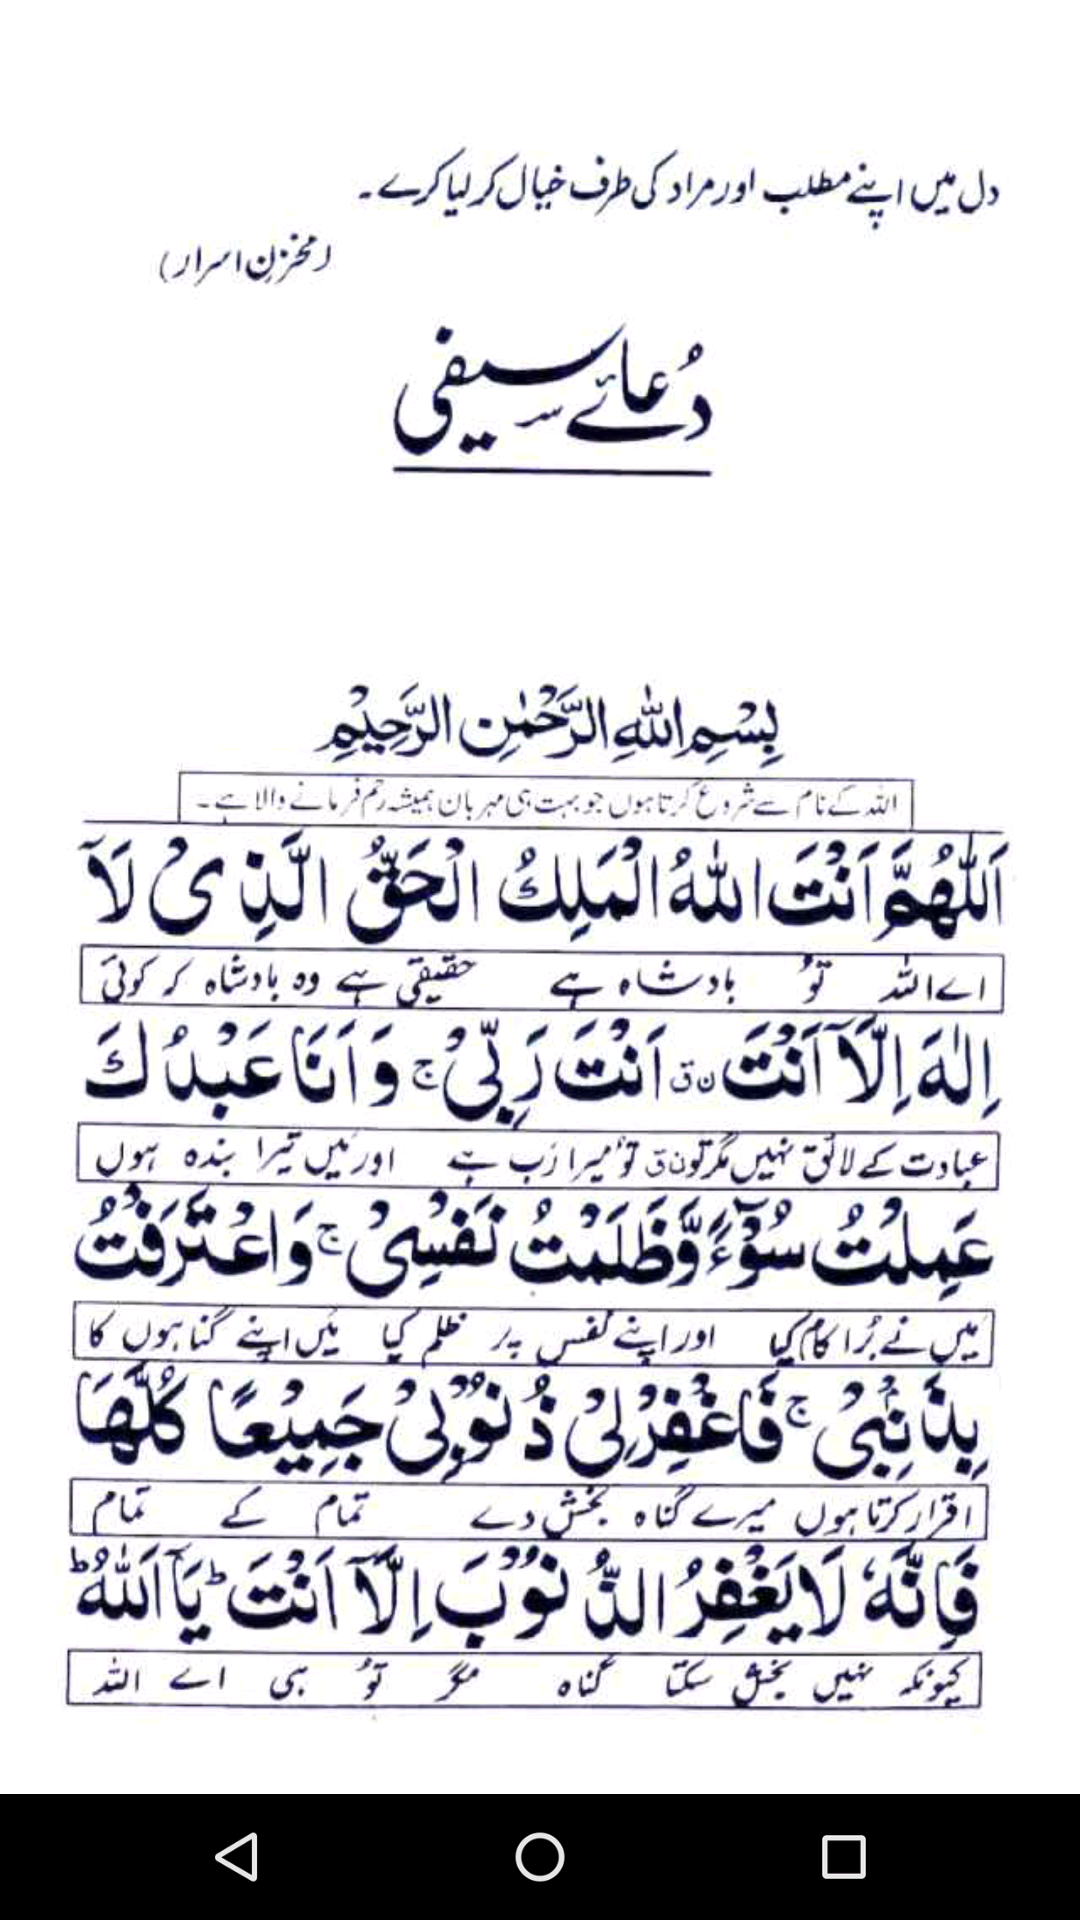 دل میں اپنے مطلب اور مراد کی طرف خیال کر لیا کرے۔
(مخزنِ اسرار)
دُعائے سیفی
بِسْمِ اللهِ الرَّحْمٰنِ الرَّحِيْمِ
اللہ کے نام سے شروع کرتا ہوں جو بہت ہی مہربان ہمیشہ رحم فرمانے والا ہے۔
اَللّٰهُمَّ اَنْتَ اللهُ الْمَلِكُ الْحَقُّ الَّذِىْ لَآ
اے اللہ توُ بادشاہ ہے حقیقی ہے وہ بادشاہ کہ کوئی
اِلٰهَ اِلَّآ اَنْتَ ن ق اَنْتَ رَبِّىْ ج وَ اَنَا عَبْدُكَ
عبادت کے لائق نہیں مگر تو ن ق توُ میرا رَب ہے اور مَیں تیرا بندہ ہوں
عَمِلْتُ سُوْٓءً وَّظَلَمْتُ نَفْسِىْ ج وَاعْتَرَفْتُ
مَیں نے بُرا کام کیا اور اپنے نفس پر ظلم کیا مَیں اپنے گناہوں کا
بِذَنْۢبِىْ ج فَاغْفِرْ لِىْ ذُنُوْبِىْ جَمِيْعًا كُلَّهَا
اقرار کرتا ہوں میرے گناہ بخش دے تمام کے تمام
فَاِنَّهٗ لَا يَغْفِرُ الذُّنُوْبَ اِلَّآ اَنْتَ ط يَآ اَللهُ ط
کیونکہ نہیں بخش سکتا گناہ مگر توُ ہی اے اللہ